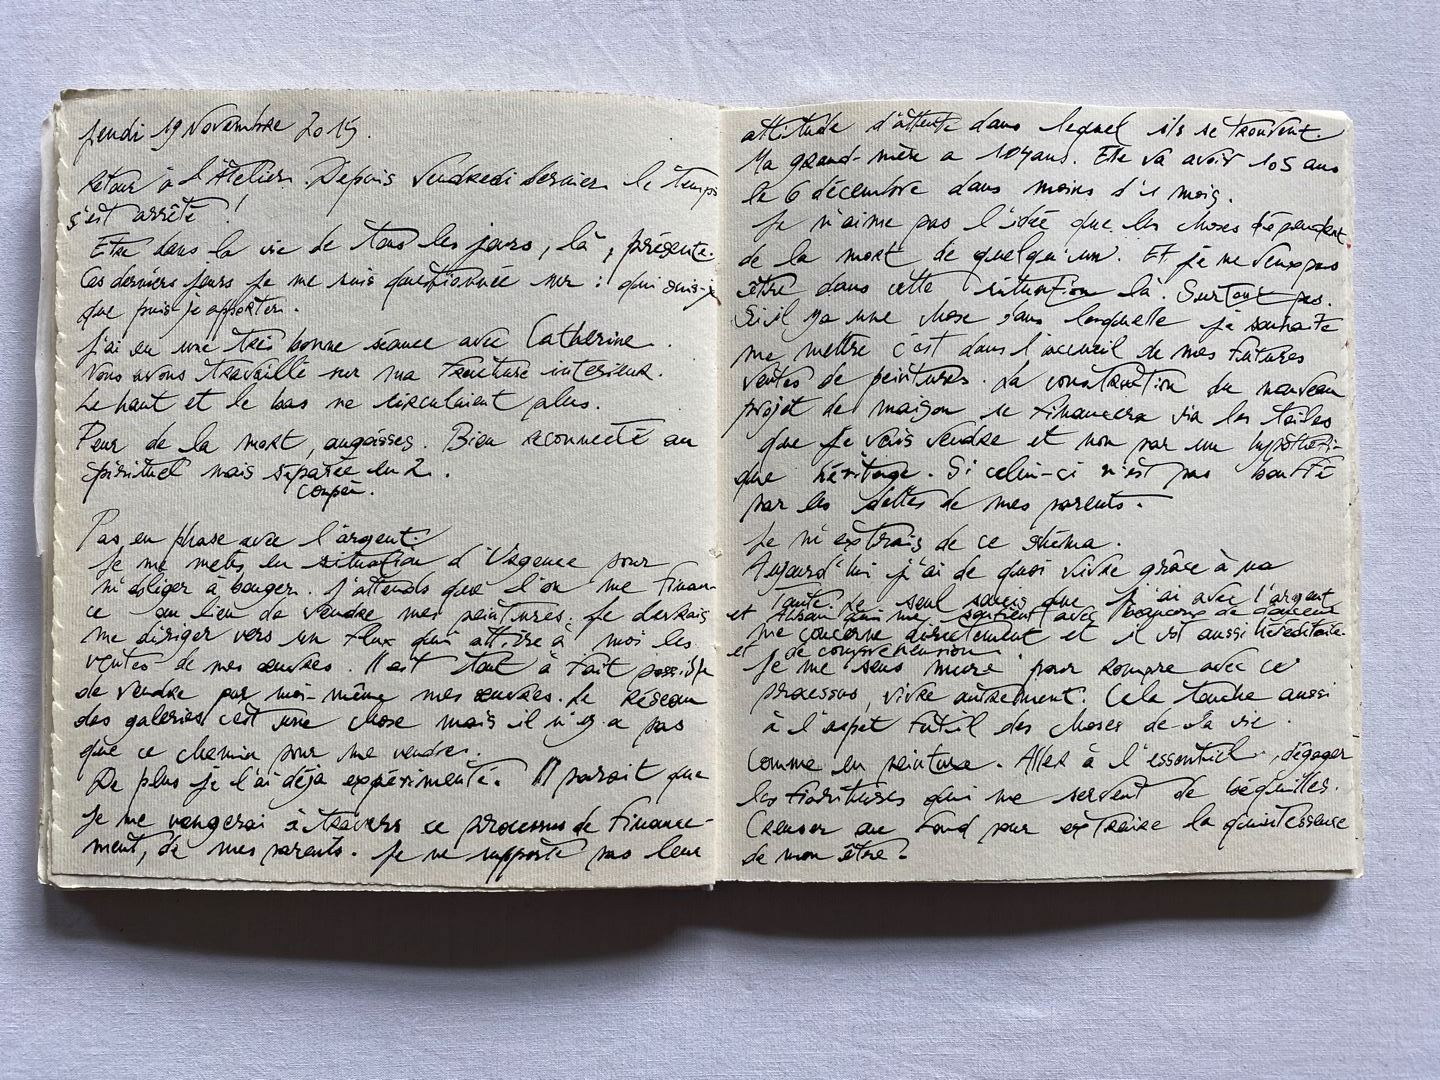 Jeudi 19 Novembre 2015.
Retour à l'Atelier. Depuis Vendredi dernier le temps
s'est arrêté !
Etre dans la vie de tous les jours, là, présente.
Ces derniers jours je me suis questionnée sur : qui suis-je
que puis je apporter.
J'ai eu une très bonne séance avec Catherine.
Nous avons travaillé sur ma fracture interieure.
Le haut et le bas ne circulaient plus.
Peur de la mort, angoisses. Bien reconnecté au
spirituel mais séparée en 2.
coupée.
Pas en phase avec l'argent.
Je me mets en situation d'Urgence pour
m'obliger à bouger. J'attends que l'on me finan-
ce au lieu de vendre mes peintures. Je devrais
me diriger vers un flux qui attire à moi les
ventes de mes œuvres. Il est tout à fait possible
de vendre par moi-même mes œuvres. Le Réseau
des galeries c'est une chose mais il n'y a pas
que ce chemin pour me vendre.
De plus je l'ai déjà expérimenté. Il paraît que
je me vengerai à travers ce processus de finance-
ment, de mes parents. Je ne supporte pas leur
attitude d'attente dans lequel ils se trouvent.
Ma grand-mère a 104 ans. Elle va avoir 105 ans
le 6 décembre dans moins d'1 mois.
Je n'aime pas l'idée que les choses dépendent
de la mort de quelqu'un. Et je ne veux pas
être dans cette situation là. Surtout pas.
Si il y a une chose dans laquelle je souhaite
me mettre c'est dans l'accueil de mes futures
ventes de peintures. La construction du nouveau
projet de maison se financera via les toiles
que je vais vendre et non par un hypothéti-
que héritage. Si celui-ci n'est pas bouffé
par les dettes de mes parents.
Je m'extrais de ce shéma.
Aujourd'hui j'ai de quoi vivre grâce à ma
tante. Le seul souci que j'ai avec l'argent
et qui me soutient avec beaucoup de douceur
me concerne directement et il est aussi héréditaire.
et de compréhension.
Je me sens mure pour rompre avec ce
processus, vivre autrement. Cela touche aussi
à l'aspet futil des choses de la vie.
Comme en peinture. Aller à l'essentiel, dégager
les fioritures qui me servent de béquilles.
Creuser au fond pour extraire la quintessence
de mon être.